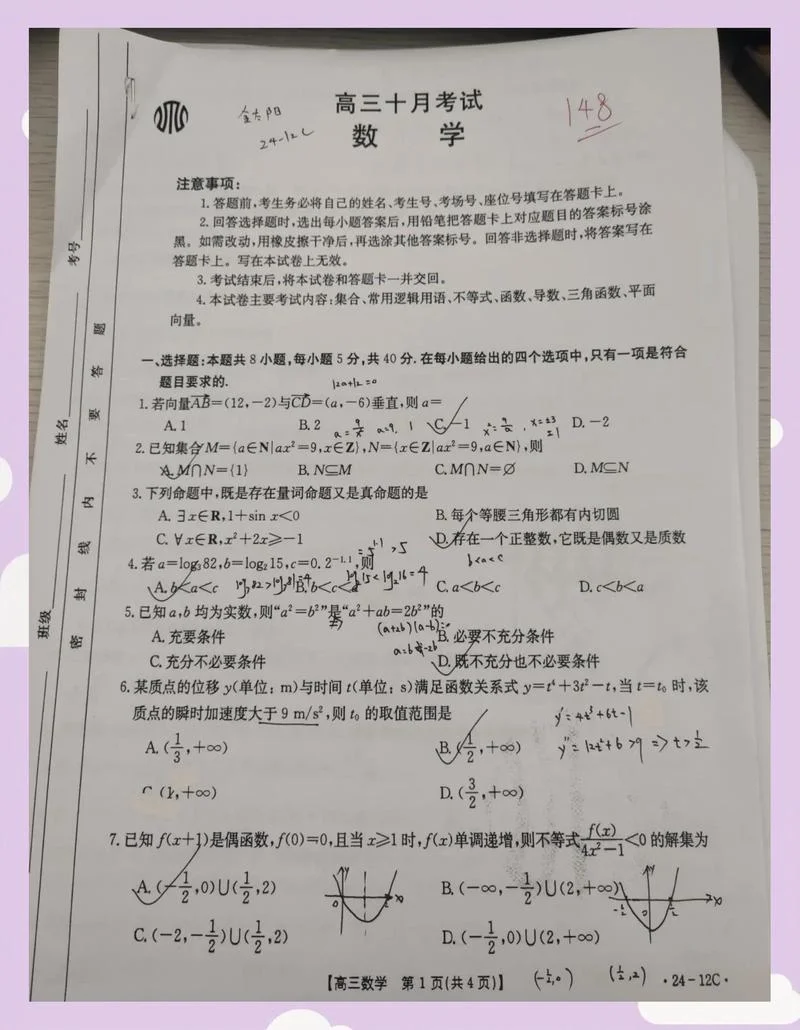 高三十月考试
148
金太阳
24-12C
数 学
注意事项:
1. 答题前,考生务必将自己的姓名、考生号、考场号、座位号填写在答题卡上。
2. 回答选择题时,选出每小题答案后,用铅笔把答题卡上对应题目的答案标号涂
黑。如需改动,用橡皮擦干净后,再选涂其他答案标号。回答非选择题时,将答案写在
答题卡上。写在本试卷上无效。
3. 考试结束后,将本试卷和答题卡一并交回。
4. 本试卷主要考试内容:集合、常用逻辑用语、不等式、函数、导数、三角函数、平面
向量。
一、选择题:本题共 8 小题,每小题 5 分,共 40 分. 在每小题给出的四个选项中,只有一项是符合
题目要求的.
12a+12=0
1. 若向量AB=(12,-2)与CD=(a,-6)垂直,则 a=
A. 1 B. 2 C. -1 D. -2
2. 已知集合 M={a∈N|ax²=9,x∈Z},N={x∈Z|ax²=9,a∈N},则
A. M∩N={1} B. N⊆M C. M∩N=∅ D. M⊆N
3. 下列命题中,既是存在量词命题又是真命题的是
A. ∃x∈R,1+sin x<0 B. 每个等腰三角形都有内切圆
C. ∀x∈R,x²+2x≥-1 D. 存在一个正整数,它既是偶数又是质数
=5^1.1 >5
b<a<c
4. 若 a=log₃82,b=log₂15,c=0.2^-1.1,则
A. b<a<c B. b<c<a C. a<b<c D. c<b<a
log₃82>log₃81=4 log₂15<log₂16=4
5. 已知 a,b 均为实数,则“a²=b²”是“a²+ab=2b²”的
(a+2b)(a-b)=0
A. 充要条件 B. 必要不充分条件
C. 充分不必要条件 D. 既不充分也不必要条件
6. 某质点的位移 y(单位: m)与时间 t(单位: s)满足函数关系式 y=t⁴+3t²-t,当 t=t₀ 时,该
质点的瞬时加速度大于 9 m/s²,则 t₀ 的取值范围是
y'=4t³+6t-1
A. (1/3,+∞) B. (1/2,+∞)
y''=12t²+6>9 => t>1/2
C. (1,+∞) D. (3/2,+∞)
7. 已知 f(x+1)是偶函数,f(0)=0,且当 x≥1 时,f(x)单调递增,则不等式 f(x)/(4x²-1)<0 的解集为
A. (-1/2,0)∪(1/2,2) B. (-∞,-1/2)∪(2,+∞)
C. (-2,-1/2)∪(1/2,2) D. (-1/2,0)∪(2,+∞)
【高三数学 第 1 页(共 4 页)】
(-1/2,0) (1/2,2)
·24-12C·
考号
姓名
班级
密 封 线 内 不 要 答 题